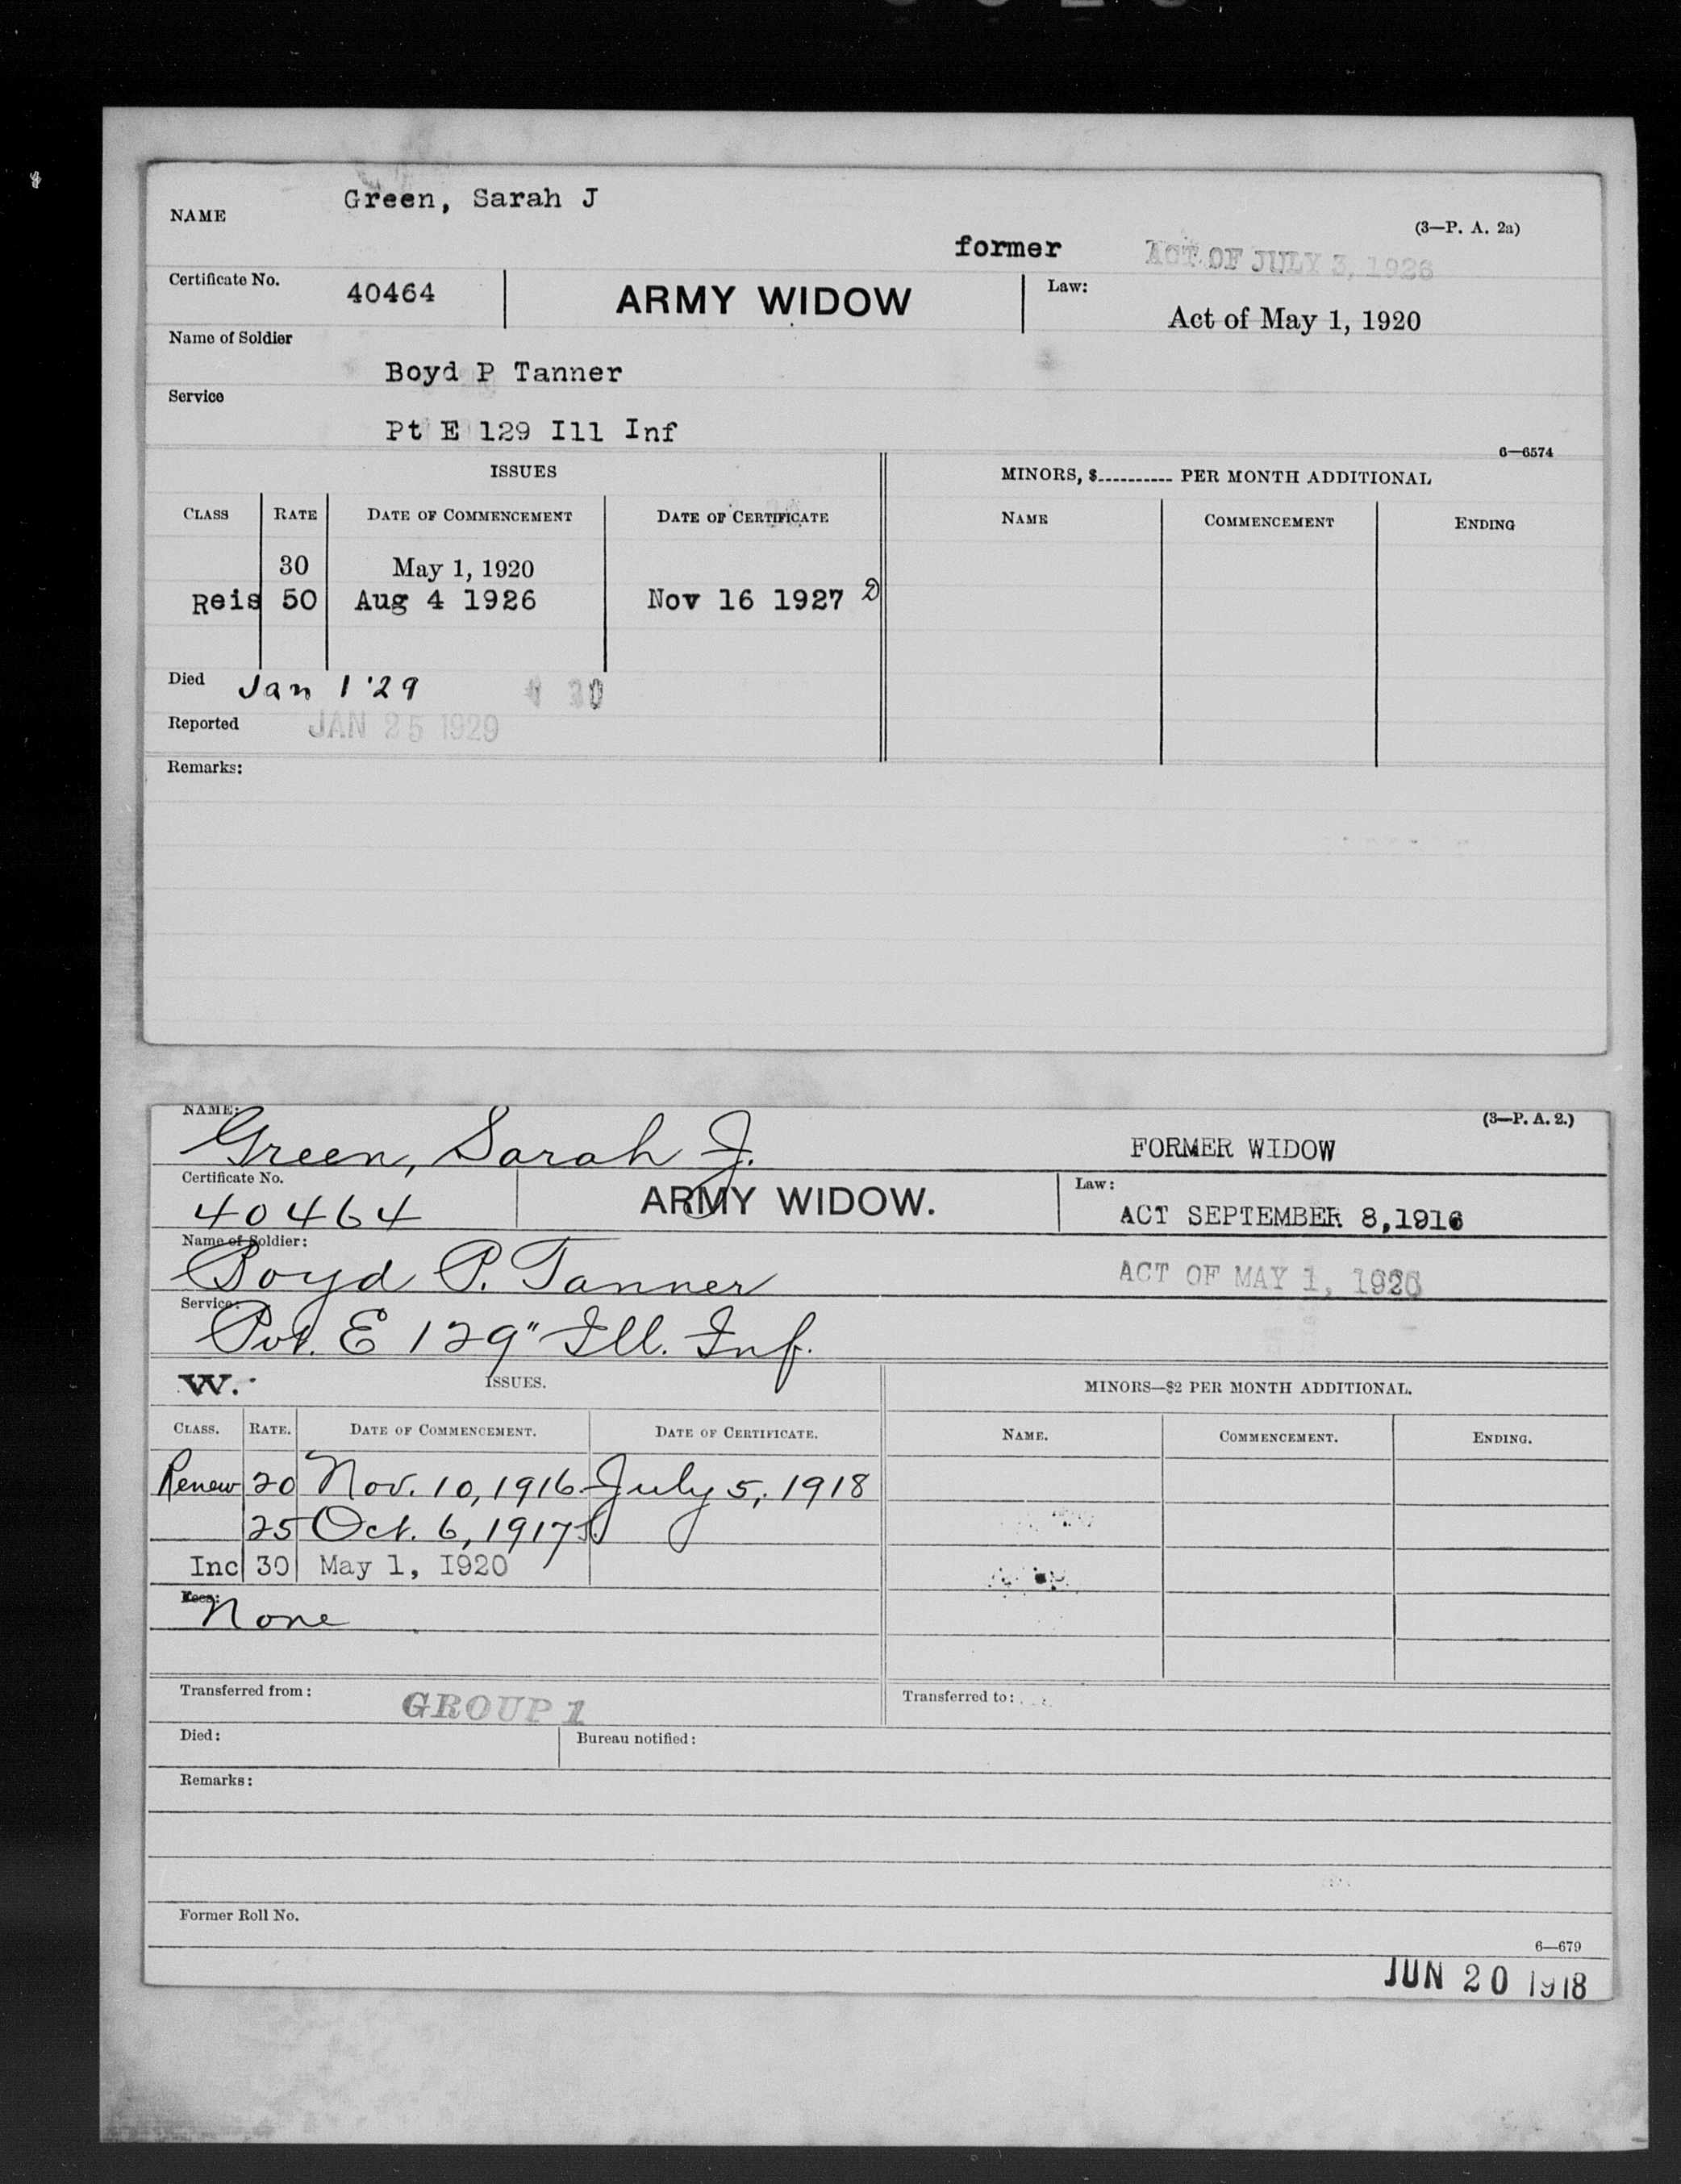 Green, Sarah J
NAME
(3—P. A. 2a)
former
ACT OF JULY 3, 1926
Certificate No. 40464
ARMY WIDOW
Law:
Act of May 1, 1920
Name of Soldier
Boyd P Tanner
Service
Pt E 129 Ill Inf
6—6574
ISSUES
MINORS, $---------- PER MONTH ADDITIONAL
CLASS RATE DATE OF COMMENCEMENT DATE OF CERTIFICATE NAME COMMENCEMENT ENDING
30 May 1, 1920
Reis 50 Aug 4 1926 Nov 16 1927 D
Died Jan 1 '29
Reported JAN 25 1929
Remarks:
NAME:
(3—P. A. 2.)
Green, Sarah J.
FORMER WIDOW
Certificate No.
40464
ARMY WIDOW.
Law:
ACT SEPTEMBER 8,1916
Name of Soldier:
Boyd P. Tanner
ACT OF MAY 1, 1920
Service:
Pvt. E 129" Ill. Inf.
W.
ISSUES.
MINORS—$2 PER MONTH ADDITIONAL.
CLASS. RATE. DATE OF COMMENCEMENT. DATE OF CERTIFICATE. NAME. COMMENCEMENT. ENDING.
Renew 20 Nov. 10, 1916 July 5, 1918
25 Oct. 6, 1917
Inc 30 May 1, I920
Fees:
None
Transferred from: GROUP 1
Transferred to:
Died:
Bureau notified:
Remarks:
Former Roll No.
6—679
JUN 20 1918